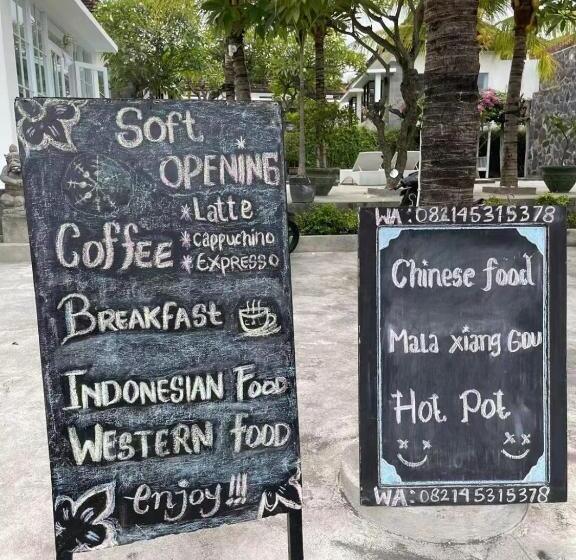 Soft
OPENING
Coffee
*Latte
*cappuchino
*EXPRESSO
BREAKFAST
INDONESIAN FOOD
WESTERN FOOD
enjoy!!!
WA:082145315378
Chinese food
Mala xiang Gou
Hot Pot
WA:082145315378